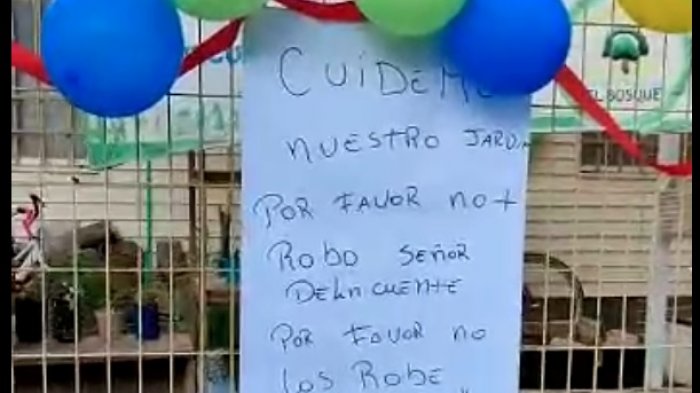 CUIDEM
NUESTRO JARDIN
POR FAVOR NO +
ROBO SEÑOR
DELINCUENTE
POR FAVOR NO
LOS ROBE
EL BOSQUE